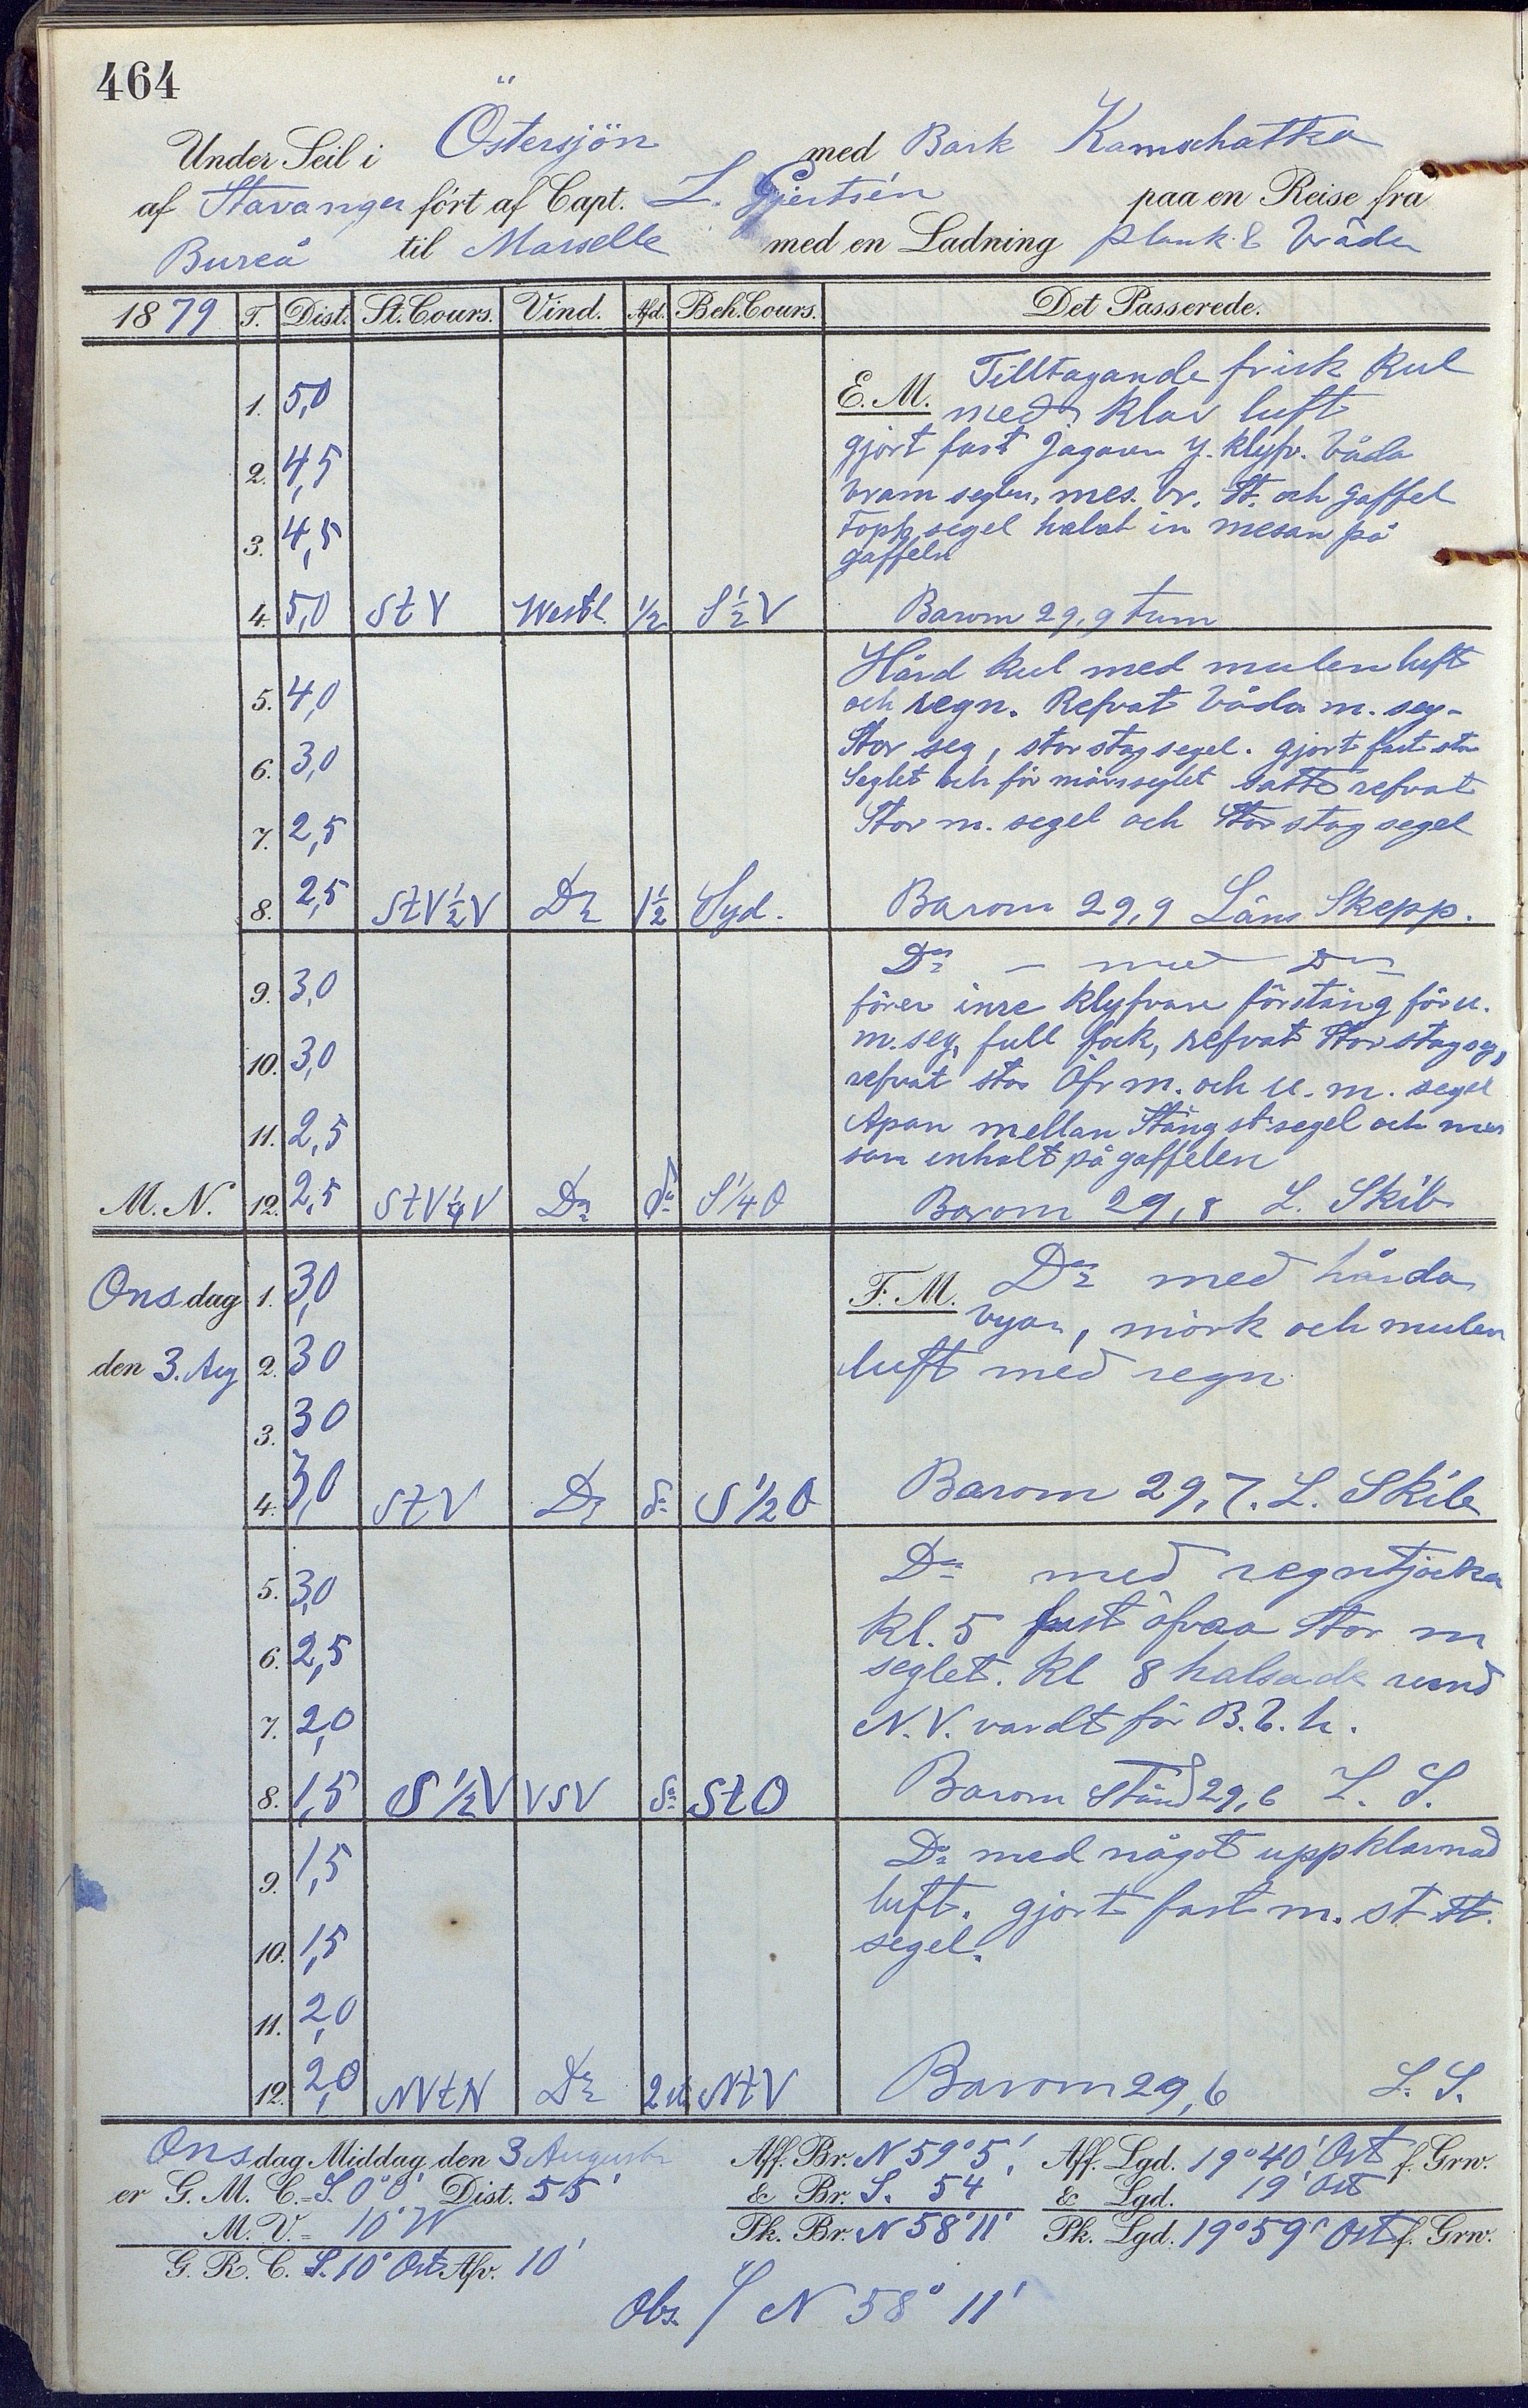 464
Under Seil i Östersjön med Bark Kamschatka
af Stavanger fört af Capt. L. Gjertsén paa en Reise fra
Bureå til Marselle med en Ladning plank & bräder
1879 T. Dist. St. Cours. Vind. Afd. Beh. Cours. Det Passerede.
E. M. Tilltagande frisk kul
1. 5,0 med klar luft
gjort fast Jagaren y. klyfv. båda
2. 4,5
bram seglen, mes. br. St. och gaffel
3. 4,5 topp segel halat in mesan på
gaffeln
4. 5,0 StV Westl. 1/2 S 1/2 V Barom 29,9 tum
Hård kul med mulen luft
5. 4,0 och regn. Refvat båda m. seg-
6. 3,0 Stor seg, stor stag segel. gjort fast stor
Seglet och för märsseglet satt refvat
7. 2,5 Stor m. segel och Stor stag segel
8. 2,5 StV 1/2 V Do 1 1/2 Syd. Barom 29,9 Läns Skepp.
Do — med Do
9. 3,0 förer inre klyfvare förstäng för u.
10. 3,0 m. seg, full fock, refvat Stor stag seg,
refvat stor Öfr m. och u. m. segel
11. 2,5 Apan mellan Stäng st. segel och me
san inhalt på gaffelen
M. N. 12. 2,5 StV 1/4 V Do do S 1/4 O Barom 29,8 L. Skib
Onsdag 1. 3,0 F. M. Do med hårda
byar, mörk och mulen
den 3. Aug 2. 30 luft med regn
3. 30
4. 3,0 StV Do do S 1/2 O Barom 29,7. L. Skib
Do med regntjocka
5. 3,0
kl. 5 fast öfvra Stor m
6. 2,5 seglet. kl 8 halsade rund
7. 2,0 N. V. vardt för B. b. h.
8. 1,5 S 1/2 V VSV do StO Barom Stånd 29,6 L. S.
Do med något uppklarnad
9. 1,5
luft. gjort fast m. st St.
10. 1,5 segel.
11. 2,0
12. 2,0 NVtN Do 2 NtV Barom 29,6 L. S.
Onsdag Middag den 3 Augusti Aff. Br. N 59° 5' Aff. Lgd. 19° 40' Ost f. Grw.
er G. M. C. = S. 0° 0' Dist. 55' & Br. S. 54 & Lgd. 19' Ost
M. V. = 10° W Pk. Br. N 58° 11' Pk. Lgd. 19° 59' Ost f. Grw.
G. R. C. S. 10° Ost Afv. 10'
Obs. N 58° 11'